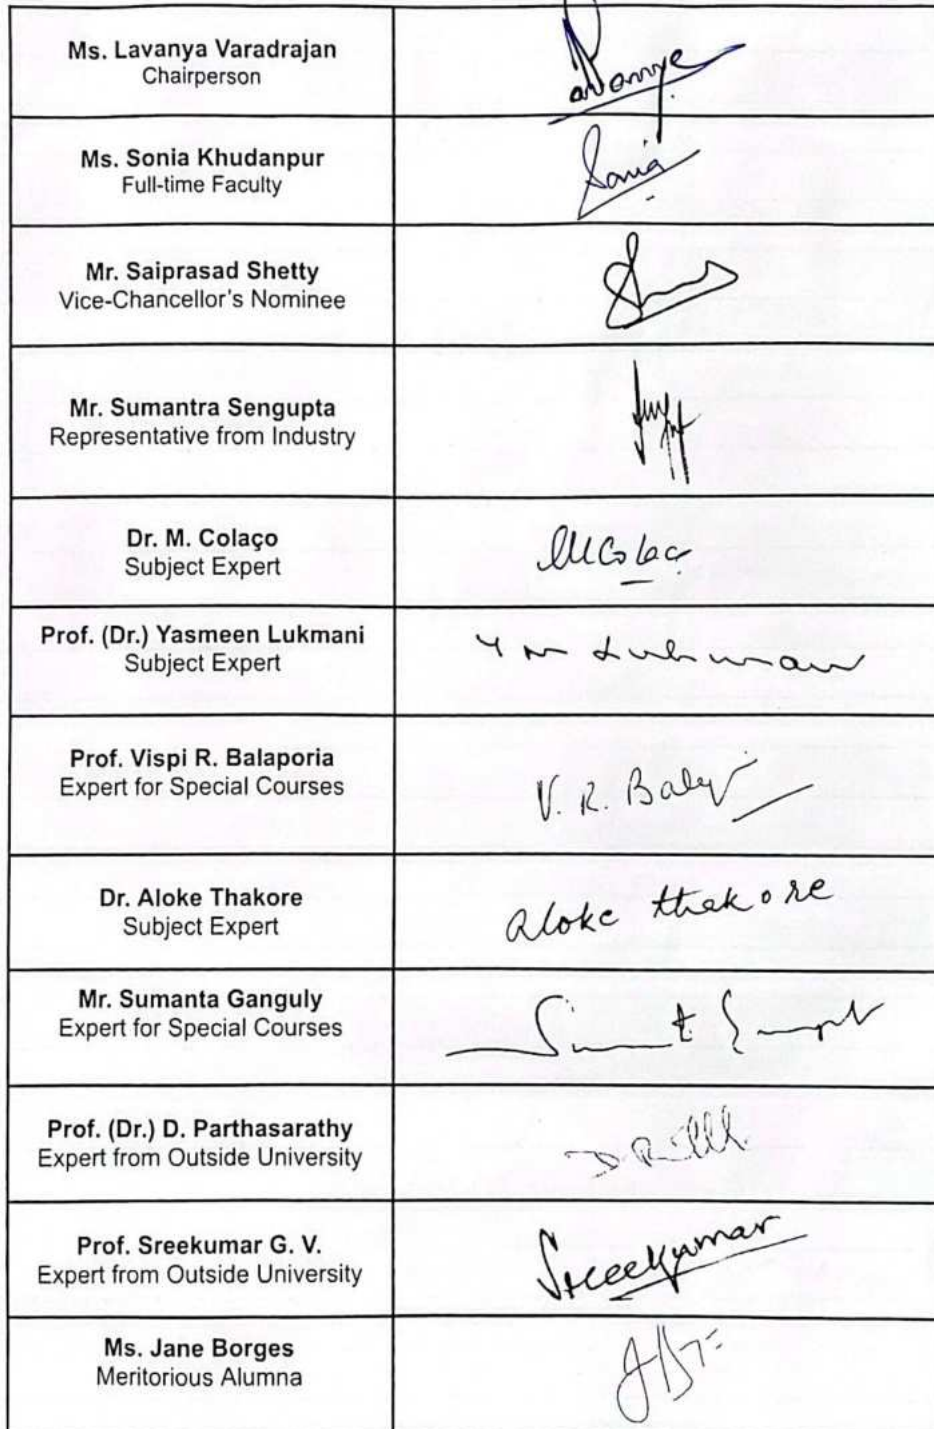 Ms. Lavanya Varadrajan
Chairperson
Ms. Sonia Khudanpur
Full-time Faculty
Sonia
Mr. Saiprasad Shetty
Vice-Chancellor's Nominee
Mr. Sumantra Sengupta
Representative from Industry
Dr. M. Colaço
Subject Expert
Prof. (Dr.) Yasmeen Lukmani
Subject Expert
Prof. Vispi R. Balaporia
Expert for Special Courses
V. R.
Dr. Aloke Thakore
Subject Expert
Aloke thakore
Mr. Sumanta Ganguly
Expert for Special Courses
Prof. (Dr.) D. Parthasarathy
Expert from Outside University
Prof. Sreekumar G. V.
Expert from Outside University
Sreekumar
Ms. Jane Borges
Meritorious Alumna